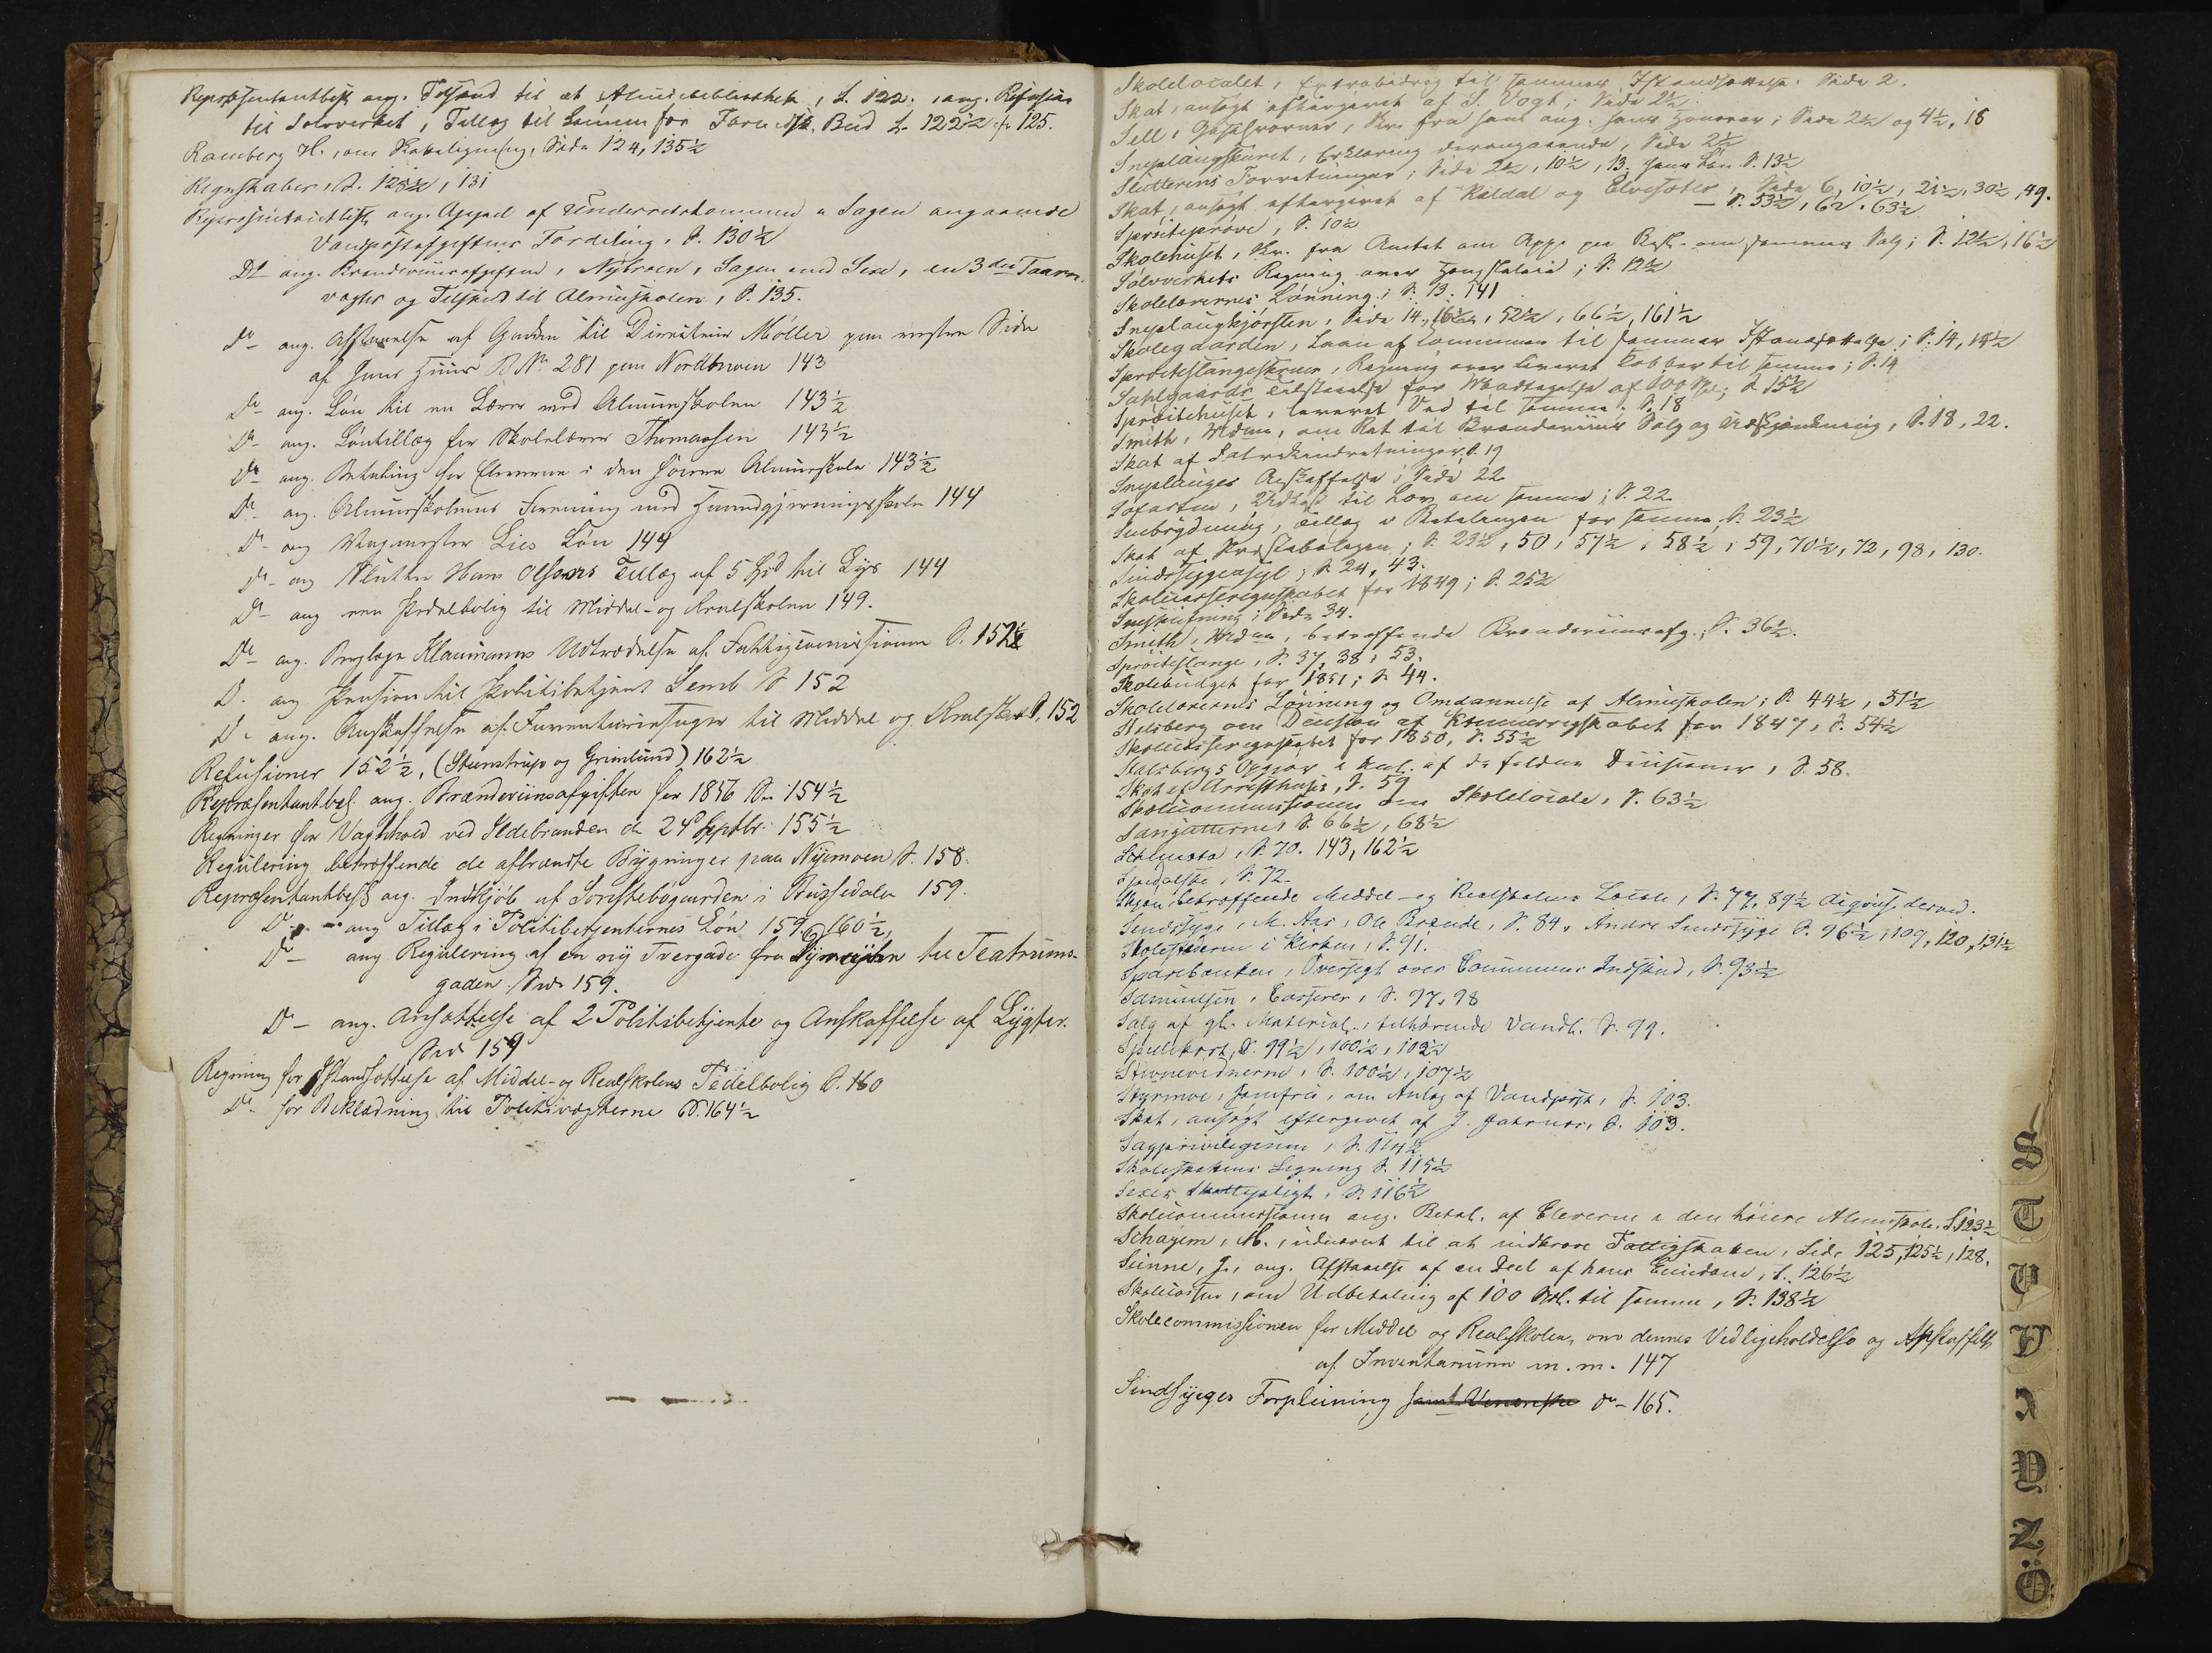 Repræsentantbesl. ang. Tilskud til et Almuebibliothek, S. 122., ang. Refusion
til Sølvverket, Tillæg til Lønnen for Bud S. 122½ fr 125.
Ramberg H., om Skatteligning, Side 124, 135½
Regnskaber, S. 128½, 131
Repræsentantbesl. ang. Appel af Underretsdommen i Sagen angaaende
Vandpostafgiftens Fordeling, S. 130½
Dº ang. Brændeviinsafgiften, Nybroen, Sagen med Sexe, en 3die Taarn-
vogter og Tilskud til Almueskolen, S. 135.
Dº ang. Afstaaelse af Gaden til Directeur Møller paa vestre Side
af hans Huus R Nº 281 paa Nordbroen 143
Dº ang. Løn til en Lærer ved Almueskolen 143½
Dº ang. Løntillæg for Skolelærer Thomassen 143½
Dº ang. Betaling for Eleverne i den høiere Almueskole 143½
Dº ang. Almueskolens Forening med Haandgjerningsskolen 144
Dº ang Vagmester Lies Løn 144
Dº ang Slutter Hans Olsens Tillæg af 5 Spd til Lys 144
Dº ang en Pedelbolig til Middel- og Realskolen 149.
Dº ang. Berglæge Klaumanns Udtrædelse af Fattigcommissionen S. 151½
Dº ang Pension til Politibetjent Lemb S 152
Dº ang. Anskaffelse af Inventariesager til Middel og Realskolen S. 152
Refusioner 152½, (Steenstrup og Grimlund) 162½
Repræsentantbesl. ang. Brændeviinsafgiften for 1856 Sd. 154½
Regninger for Vagthold ved Ildebranden d. 24d Septbr. 155½
Regulering betræffende de afbrændte Bygninger paa Nymoen S. 158.
Repræsentantbesl. ang. Indkjøb af Sorestebøgaarden i Bussedalen 159.
Dº ang Tillæg i Politibetjenternes Løn 159. 160½,
Dº ang Regulering af en ny Tvergade fra Nymoen til Teatrums-
gaden Side 159.
Dº ang. Ansættelse af 2 Politibetjente og Anskaffelse af Lygter.
Side 159
Regning for Istandsættelse af Middel- og Realskolens Pedelbolig S. 160
Dº for Beklædning til Politivægterne S. 164½
Skolelocalet, Extrabidrag til sammes Istandsættelse. Side 2.
Skat, ansøgt eftergivet af S. Vogt; Side 2½.
Sell, Gjæstgiver, Skr. fra ham ang. hans Honorar; Side 2½ og 4½, 18
Sneplougskuret, Erklæring derangaaende, Side 2½
Slutterens Forretninger; Side 2½, 10½, 13. hans Løn S. 13½
Skat, ansøgt eftergivet af Kaldal og Elvesæter, Side 6, 10½, 21½, 30½, 49.
— S. 53½, 62. 63½
Sprøiteprøve, S. 10½
Skolehuset, Skr. fra Amtet om App. paa Besl. om sammes Salg; S. 12½, 16½
Sølvverkets Regning over Slangeleie; S. 12½
Skolelærernes Lønning; S. 13. 141
Sneplougkjørslen, Side 14, 16½, 52½, 66½, 161½
Skolegaarden, Laan af Communen til sammes Istandsættelse; S. 14, 18½
Sprøiteslangeskruer, Regning over leveret Kobber til samme; S. 14
Sahlgaards Tilstaaelse for Modtagelse af 100 Spd; S. 15½
Sprøitehuset, leveret Ved til samme; S. 18
Smith, Mdme, om Ret til Brændeviins Salg og Udskjænkning, S. 18, 22.
Skat af Fabrikindretninger S. 19
Sneplouges Anskaffelse; Side 22
Søfarten, Udkast til Lov om samme; S. 22
Snebrydning, Tillæg i Betalingen for samme, S. 23½
Skat af Præstebolegen; S. 23½, 50, 57½, 58½, 59, 70½, 72, 98, 130.
Sindssygeasyl; S. 24, 43.
Skolecasseregnskabet for 1849; S. 25½
Smith, Mdme, betreffende Brændeviinsafg.; S. 36½.
Sprøiteslange, S. 37, 38, 53.
Skolebudget for 1851; S. 44.
Skolelærernes Lønning og Omdannelse af Almueskolen; S. 44½, 51½
Stalsberg om Decision af Kæmnerregnskabet for 1847, S. 54½
Skolecasseregnskabet for 1850, S. 55½
Stalsbergs Opgjør i Anl. af de faldne Decisioner, S. 58.
Skat af Arresthuset, S. 59
Skolecommissionen om Skolelocale, S. 63½
Sangatternes S. 66½, 68½
S. 70. 143, 162½
Spedalske, S. 72
Skjøn, betræffende Middel- og Realskolens Locale, S. 77, 89½ derved.
Sindssyge, M. Aas, Ole Brænde, S. 84, Andre Sindssyge S. 96½, 109, 120, 131½
Skolestolerne i Kirken, S. 91.
Sparebanken, Oversigt over Communens Indskud, S. 93½
Samuelsen, Casserer, S. 97, 98
Salg af gl. Material, tilhørende Vandl. S. 99.
Spillekort, S. 99½, 100½, 102½
Stevnevidnerne, S. 100½, 107½
Styrmoe, Jomfru, om Anlæg af Vandpost, S. 103.
Skat, ansøgt eftergivet af J. S. 103.
Sagprivilegium, S. 114½
Skoleskattens Ligning S. 115½
Sexes Skattepligt, S. 116½
Skolecommissionen ang. Betal. af Eleverne i den høiere Almueskole. S. 123½
Schagem, M., udnævnt til at indkræve Fattigskatten, Side 125, 125½, 128,
Sinne, J., ang. Afstaaelse af en Deel af hans Eiendom, S. 126½
Skolecassen, om Udbetaling af 100 Spdl. til samme, S. 138½
Skolecommissionen for Middel og Realskolen, om dennes Vedligeholdelse og Anskaffelse
af Inventarium m. m. 147
Sindsyges Forpleining samt Veneriske dº – 165.
S
T
U
V
X
Y
Z
Ö